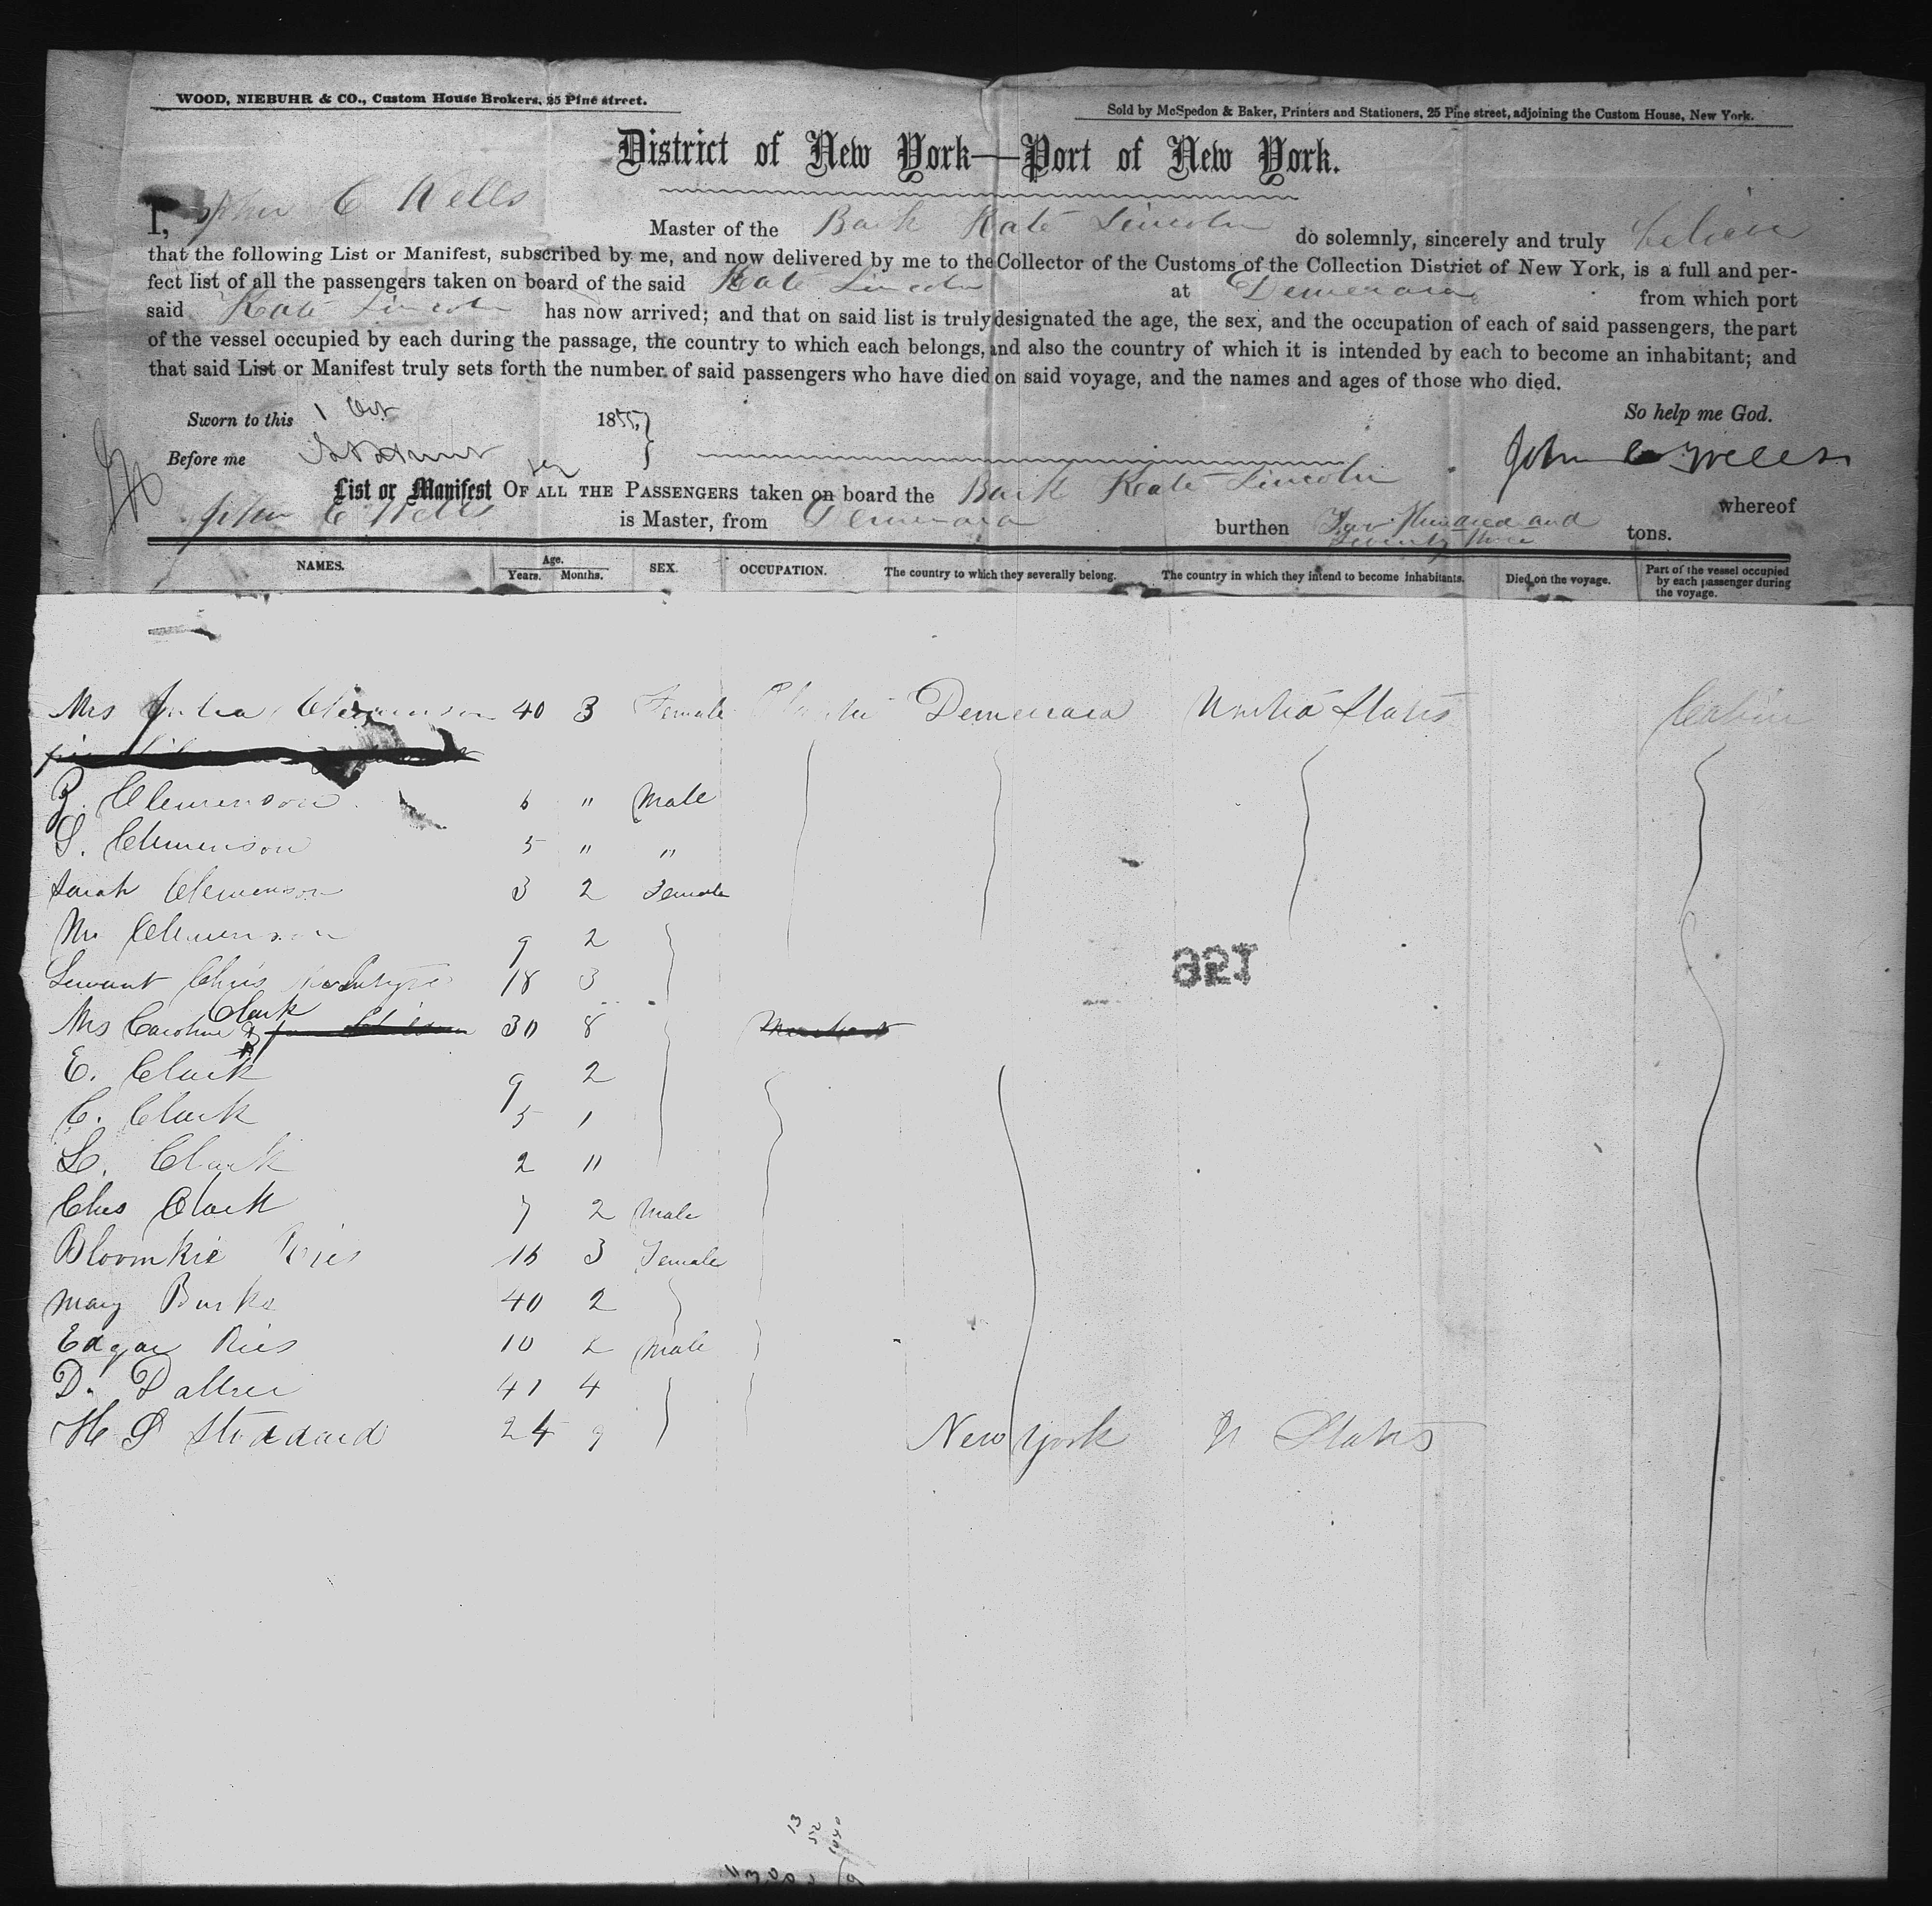 WOOD, NIEBUHR & CO., Custom House Brokers, 25 Pine street.
Sold by McSpedon & Baker, Printers and Stationers, 25 Pine street, adjoining the Custom House, New York.
District of New York—Port of New York.
I, John C Wells Master of the Bark Kate Lincoln do solemnly, sincerely and truly believe
that the following List or Manifest, subscribed by me, and now delivered by me to the Collector of the Customs of the Collection District of New York, is a full and per-
fect list of all the passengers taken on board of the said Kate Lincoln at Demerara from which port
said Kate Lincoln has now arrived; and that on said list is truly designated the age, the sex, and the occupation of each of said passengers, the part
of the vessel occupied by each during the passage, the country to which each belongs, and also the country of which it is intended by each to become an inhabitant; and
that said List or Manifest truly sets forth the number of said passengers who have died on said voyage, and the names and ages of those who died.
Sworn to this 1 Oct 1855, So help me God.
Before me John C Wells
List or Manifest OF ALL THE PASSENGERS taken on board the Bark Kate Lincoln whereof
John C Wells is Master, from Demerara burthen Two Hundred and Seventy three tons.
NAMES. Age. Years. Months. SEX. OCCUPATION. The country to which they severally belong. The country in which they intend to become inhabitants. Died on the voyage. Part of the vessel occupied by each passenger during the voyage.
Mrs Julia Clemenson 40 3 Female Demerara United States Cabin
Z. Clemenson 6 " Male
S. Clemenson 5 " "
Sarah Clemenson 3 2 Female
Clemenson 9 2
Servant Chris 18 3
Mrs Caroline Clark 30 8
E. Clark 9 2
C. Clark 5 1
L. Clark 2 11
Chs Clark 7 2 Male
Bloomkie Ries 16 3 Female
Mary Burke 40 2
Edgar Ries 10 2 Male
D. 41 4
H S Stoddard 24 9 New York U States
156
13
52